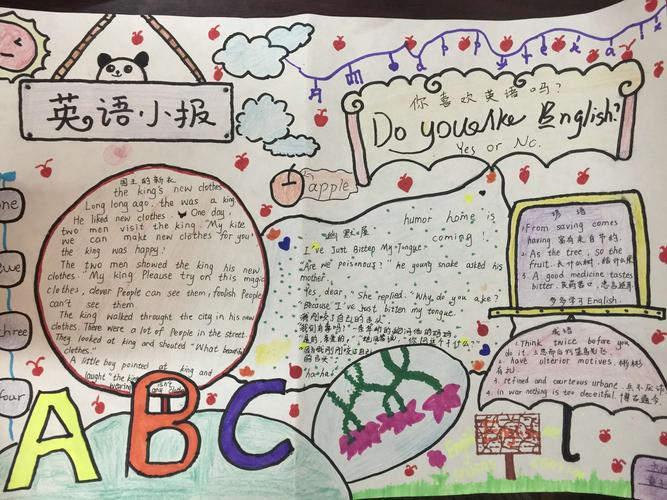 英语小报
你喜欢英语吗?
Do you like English?
Yes or No.
apple
one
three
four
国王的新衣
the king's new clothes
Long long ago, the was a king.
He liked new clothes. One day,
two men visit the king. "My kite
we can make new clothes for you!
the king was happy!
The two men showed the king his new
clothes. "My king Please try on this magic
clothes, clever People can see them, foolish People
can't see them.
The king walked through the city in his new
clothes. There were a lot of People in the street.
They looked at king and shouted "What beautiful
clothes."
A little boy pointed at king and
laught "the king
isn't
wearing any
humor home is
coming!
I've Just Bitten My Tongue.
"Are we" poisonous? " he young snake asked his
mother.
Yes, dear, "She replied. "Why do you ake?
Because I've just bitten my tongue.
"ha!ha!"
谚语
1. From saving comes
having. 富有来自节约.
2. As the tree, so the
fruit. 种什么树, 结什么果
3. A good medicine tastes
bitter. 良药苦口, 忠言逆耳
多多学习 English.
成语
1. Think twice before you
do it. 三思而行
2. have ulterior motives. 彬彬
有礼
3. refined and courteous urbane.
4. in war nothing is too deceitful. 博古通今
ABC